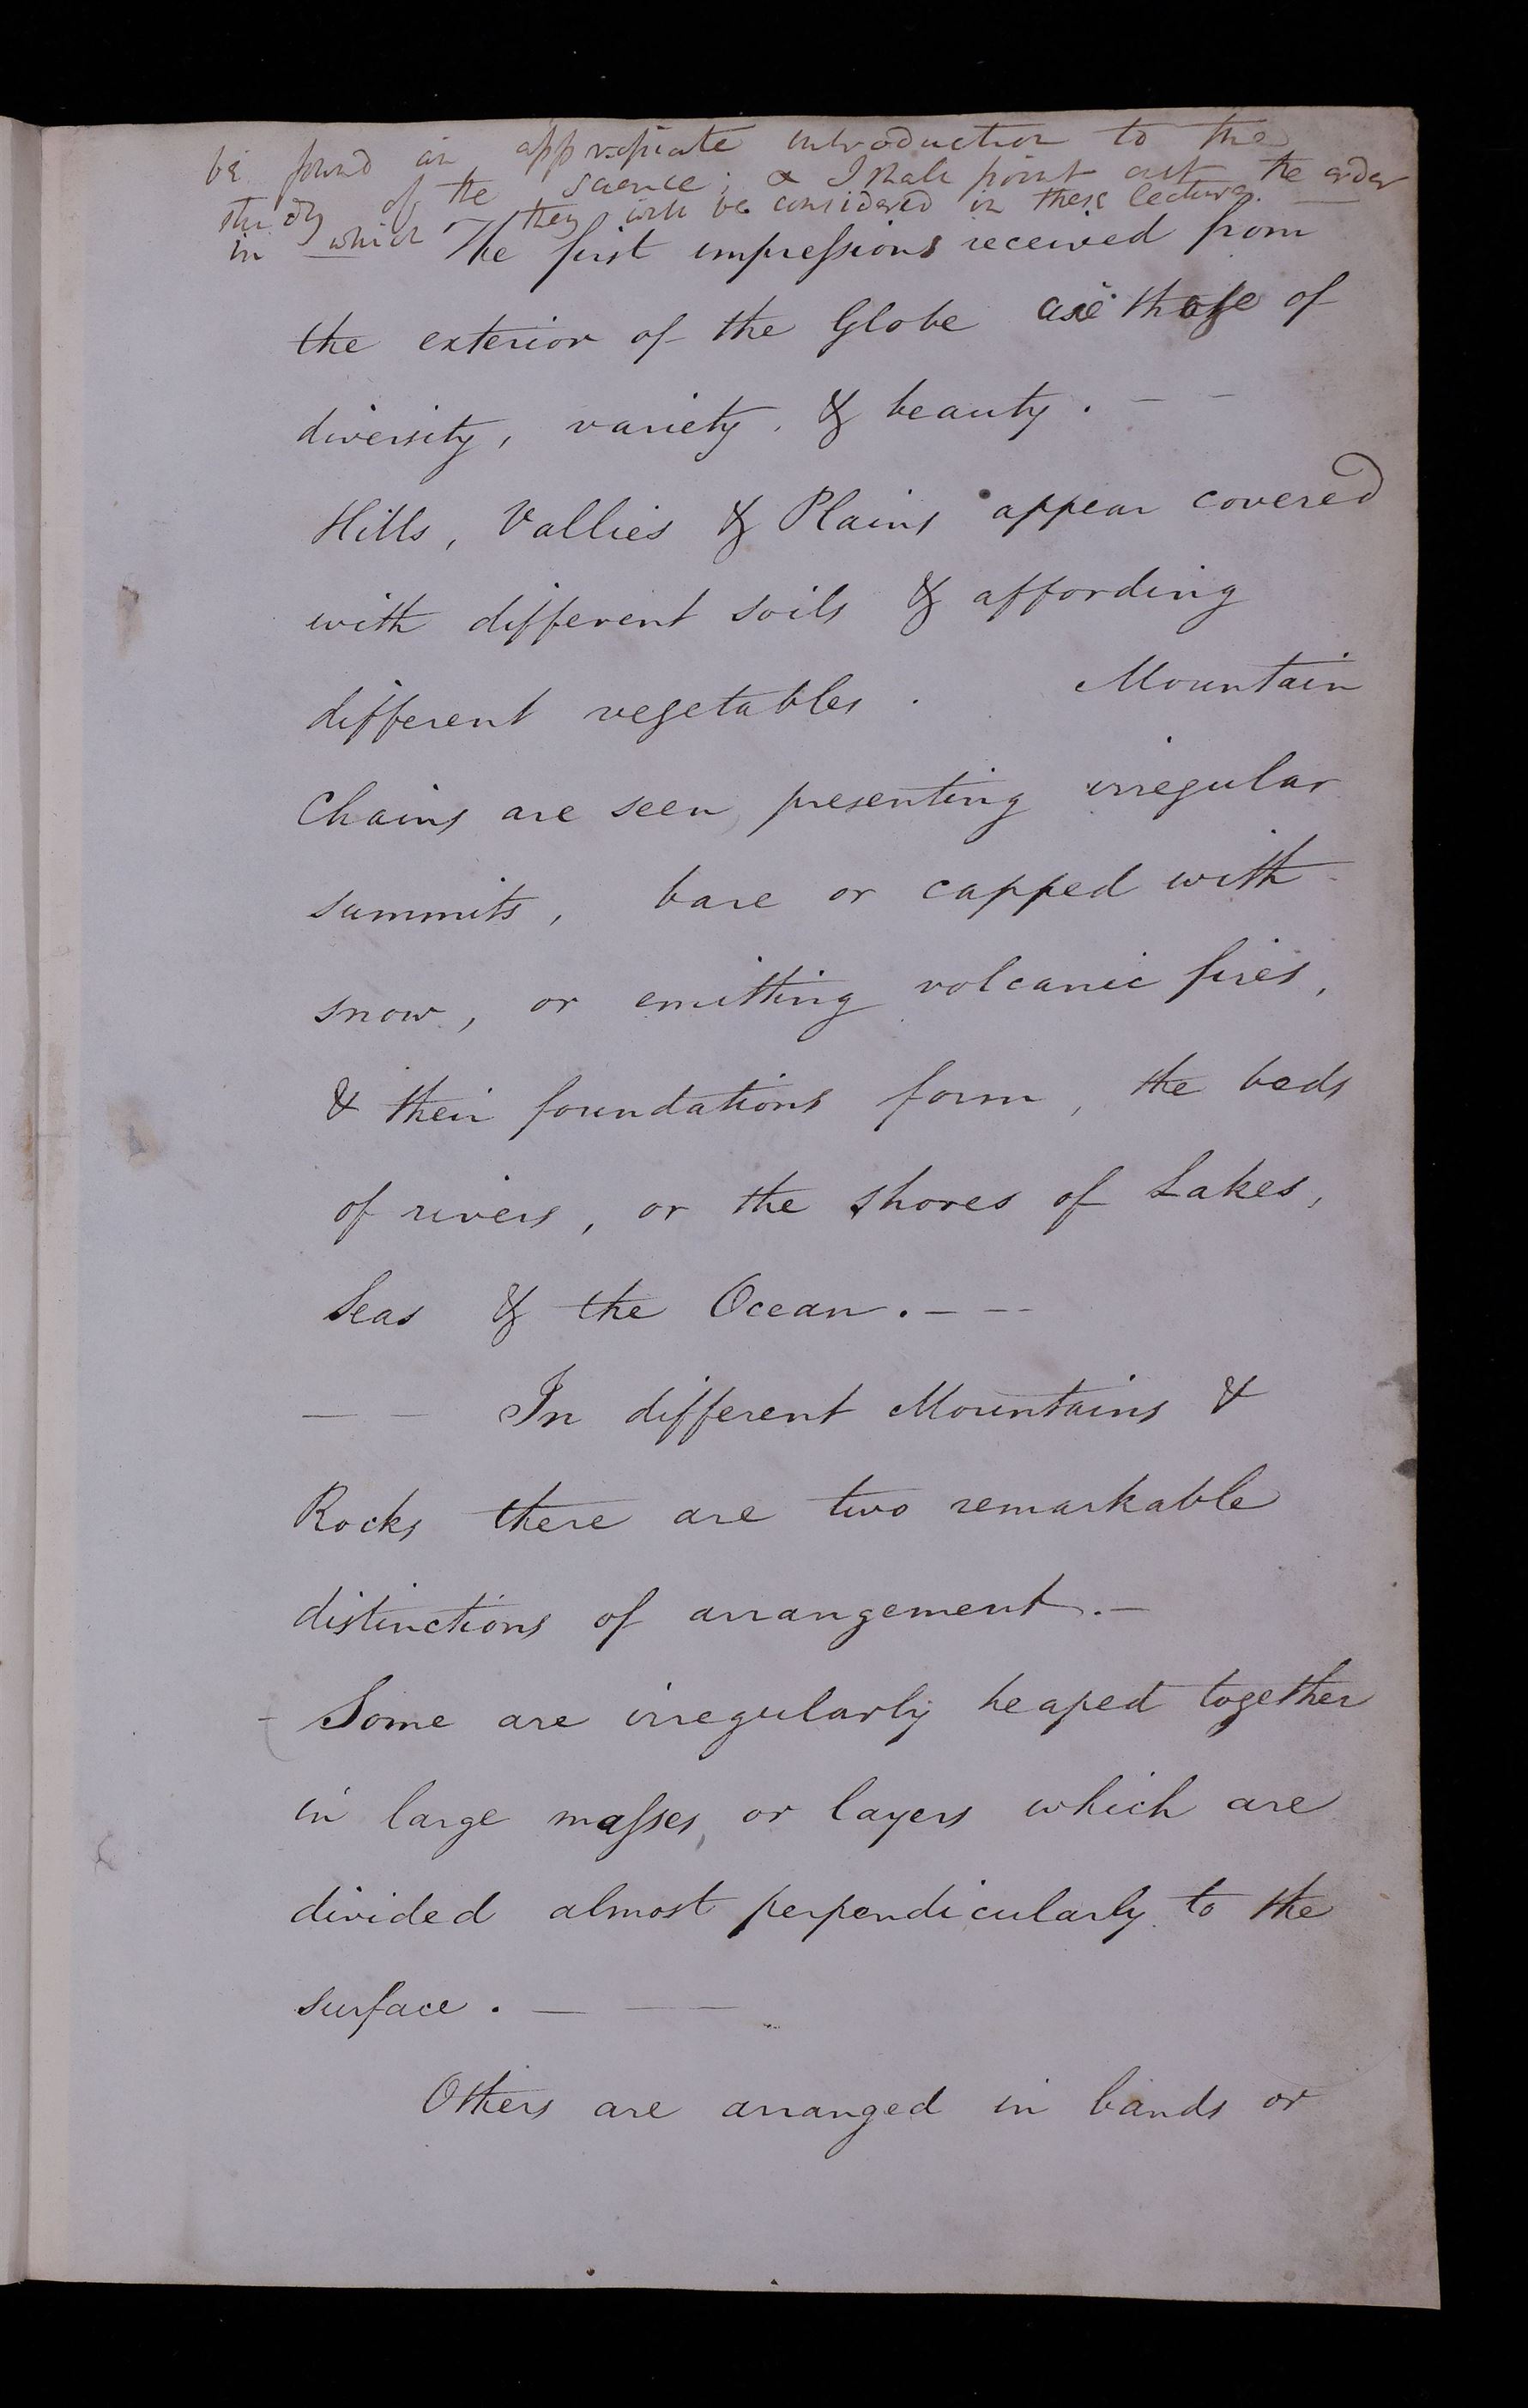 be found an appropriate introduction to the
study of the science; & I shall point out the order
in which they will be considered in these lectures. —
The first impressions received from
the exterior of the Globe are those of
diversity, variety, & beauty. – –
Hills, Vallies & Plains appear covered
with different soils & affording
different vegetables. Mountain
Chains are seen, presenting irregular
summits, bare or capped with
snow, or emitting volcanic fires,
& their foundations form, the beds
of rivers, or the shores of Lakes,
Seas & the Ocean. – –
— — In different Mountains &
Rocks there are two remarkable
distinctions of arrangement. –
– Some are irregularly heaped together
in large masses, or layers which are
divided almost perpendicularly to the
surface. — — —
Others are arranged in bands or